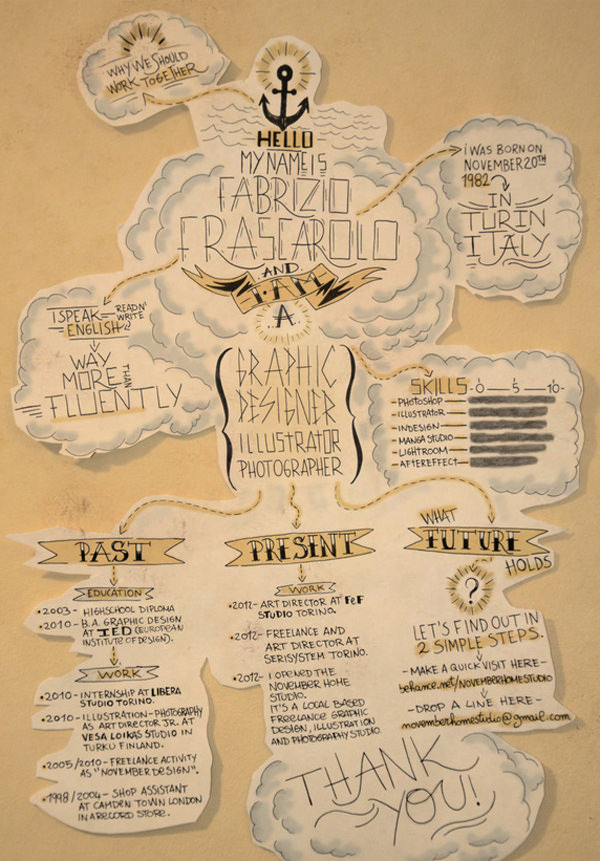 WHY WE SHOULD
WORK TOGETHER
HELLO
MY NAME IS
FABRIZIO
FRASCAROLO
AND
I AM
A
I WAS BORN ON
NOVEMBER 20TH
1982
IN
TURIN
ITALY
I SPEAK
ENGLISH
READ N'
WRITE
WAY
MORE THAN
FLUENTLY
GRAPHIC
DESIGNER
ILLUSTRATOR
PHOTOGRAPHER
SKILLS 0 5 10
PHOTOSHOP
ILLUSTRATOR
INDESIGN
MANGA STUDIO
LIGHTROOM
AFTEREFFECT
PAST
EDUCATION
•2003- HIGHSCHOOL DIPLOMA
•2010- B.A. GRAPHIC DESIGN
AT IED (EUROPEAN
INSTITUTE OF DESIGN).
WORK
•2010- INTERNSHIP AT LIBERA
STUDIO TORINO.
•2010- ILLUSTRATION-PHOTOGRAPHY
AS ART DIRECTOR JR. AT
VESA LOIKAS STUDIO IN
TURKU FINLAND.
•2005/2010- FREELANCE ACTIVITY
AS "NOVEMBER DESIGN".
•1998/2004- SHOP ASSISTANT
AT CAMDEN TOWN LONDON
IN A RECORD STORE.
PRESENT
WORK
•2012- ART DIRECTOR AT FeF
STUDIO TORINO.
•2012- FREELANCE AND
ART DIRECTOR AT
SERISYSTEM TORINO.
•2012- I OPENED THE
NOVEMBER HOME
STUDIO.
IT'S A LOCAL BASED
FREELANCE GRAPHIC
DESIGN, ILLUSTRATION
AND PHOTOGRAPHY STUDIO.
WHAT
FUTURE
HOLDS
?
LET'S FIND OUT IN
2 SIMPLE STEPS.
- MAKE A QUICK VISIT HERE -
behance.net/NOVEMBERHOMESTUDIO
- DROP A LINE HERE -
novemberhomestudio@gmail.com
THANK
YOU!